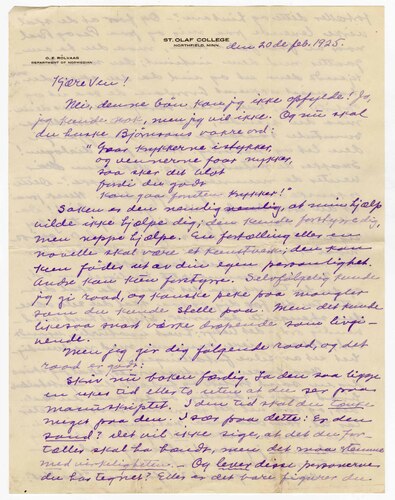 ST. OLAF COLLEGE
NORTHFIELD, MINN.
O. E. ROLVAAG
DEPARTMENT OF NORWEGIAN
den 20 de feb. 1925.
Kjære Ven!
Nei, denne bön kan jeg ikke opfylde! Ja,
jeg kunde nok, men jeg vil ikke. Og nu skal
du huske Björnsons vakre ord:
"Gaar krukkerne istykker,
og vennerne faar nykker,
saa sker det alot
fordi du godt
kan faa foruten krykker!"
Saken er den nemlig, at min hjælp
vilde ikke hjelpe dig; den kunde forstyrre dig,
men neppe hjælpe. En fortælling eller en
novelle skal være et kunstverk; den kan
kun födes ut av din egen personlighet.
Andre kan kun forstyrre. Selvfölgelig kunde
jeg gi raad, og kanske peke paa mangler
som du kunde stelle paa. Men det kunde
likesaa snart værke dræpende som livgi-
vende.
Men jeg gir dig fölgende raad, og det
raad er godt:
Skriv nu boken færdig. La den saa ligge
en ukes tid eller to uten at du ser paa
manuskriptet. I den tid skal du tænke
meget paa den. Især paa dette: Er den
sand? Det vil ikke sige, at det du for-
tæller skal ha hændt, men det maa stemme
med virkeligheten. – Og lever disse personerne
du har tegnet? Eller er det bare figurer du